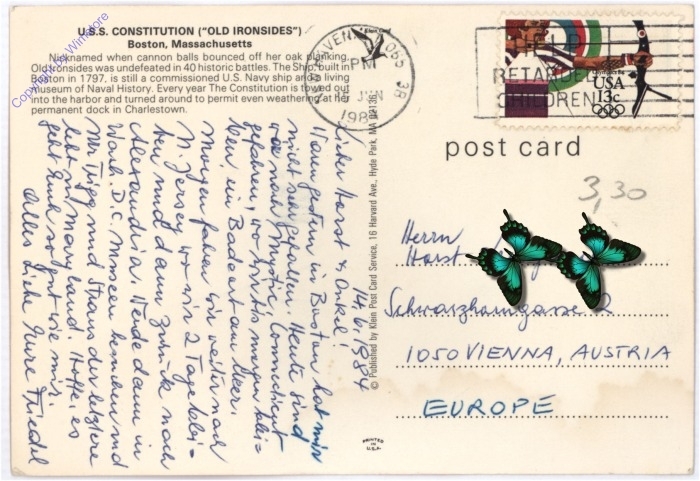 U.S.S. CONSTITUTION ("OLD IRONSIDES")
Boston, Massachusetts
Nicknamed when cannon balls bounced off her oak planking,
Old Ironsides was undefeated in 40 historic battles. The Ship, built in
Boston in 1797, is still a commissioned U.S. Navy ship and a living
museum of Naval History. Every year The Constitution is towed out
into the harbor and turned around to permit even weathering at her
permanent dock in Charlestown.
PM
JUN
RETARDED
CHILDREN
USA
13c
post card
3,30
14.6.1984
Lieber Horst & Onkel!
Waren gestern in Boston hat mir
nicht sehr gefallen. Heute sind
wir nach Mystic, Connecticut
gefahren, wo wir bis morgen blei=
ben, ein Badeort am Meer.
Morgen fahren wir weiter nach
N. Jersey wo wir 2 Tage blei=
ben und dann zurück nach
Alexandria. Werde dann in
Wash. D.C. Museen besuchen und
Mr. Trigg und Straus der letztere
lebt in Maryland. Hoffe, es
geht Euch so gut wie mir
Alles Liebe Eure Friedel
© Published by Klein Post Card Service, 16 Harvard Ave., Hyde Park, MA 02136
PRINTED
IN
U.S.A.
Herrn
Horst
Schwarzhorngasse
1050 VIENNA, AUSTRIA
EUROPE